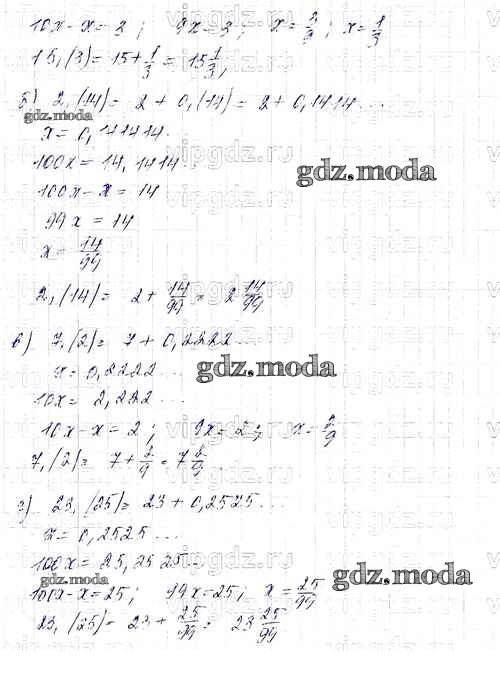 10x - x = 3 ; 9x = 3 ; x = 3/9 ; x = 1/3
15,(3) = 15 + 1/3 = 15 1/3 ;
б) 2,(14) = 2 + 0,(14) = 2 + 0,1414...
gdz.moda
x = 0,141414.
100x = 14,1414
gdz.moda
100x - x = 14
99x = 14
x = 14/99
2,(14) = 2 + 14/99 = 2 14/99
в) 7,(2) = 7 + 0,2222...
x = 0,2222...
gdz.moda
10x = 2,222...
10x - x = 2 ; 9x = 2 ; x = 2/9
7,(2) = 7 + 2/9 = 7 2/9
г) 23,(25) = 23 + 0,2525...
x = 0,2525...
100x = 25,2525...
gdz.moda
gdz.moda
100x - x = 25 ; 99x = 25 ; x = 25/99
23,(25) = 23 + 25/99 = 23 25/99
vipgdz.ru